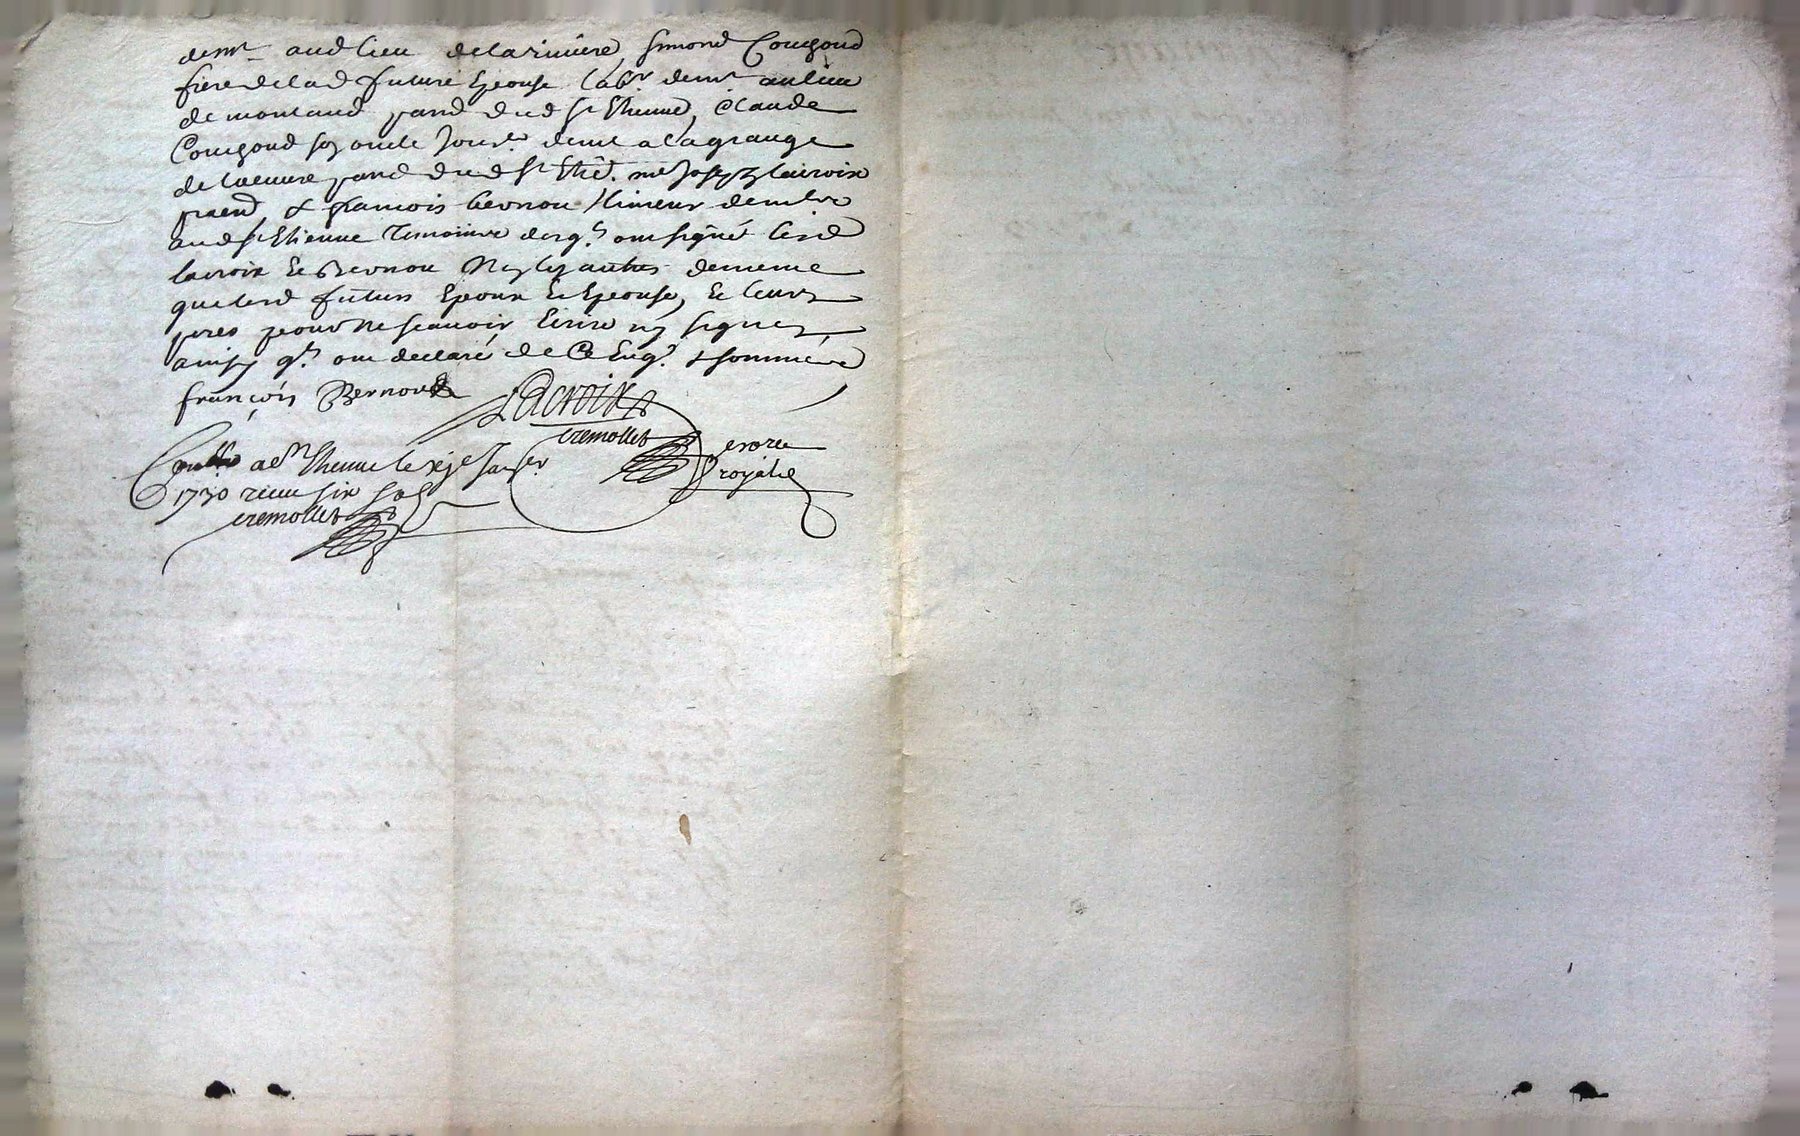 demt aud lieu de la riviere, Simond Courgond
frere de lad future Epouse labr demt au lieu
de montaud parr dud St Etienne, Claude
Courgond son oncle Jourr demt a la grange
de parr dud St Etie. me Joseph lacroix
pratn & francois bernou limeur demtre
aud St Etienne Temoins desqls ont signé lesd
lacroix Et Bernou Non les autres de meme
que lesd futurs Epoux Et Epouse, Et leurs
peres pour ne scavoir Ecrire ny signer
ainsy qls ont declaré de ce Enqs & sommés
françois Bernou
Lacroix
cremollet
nore
royal
a St Etienne le Janver
1730 receu six sols
cremollet